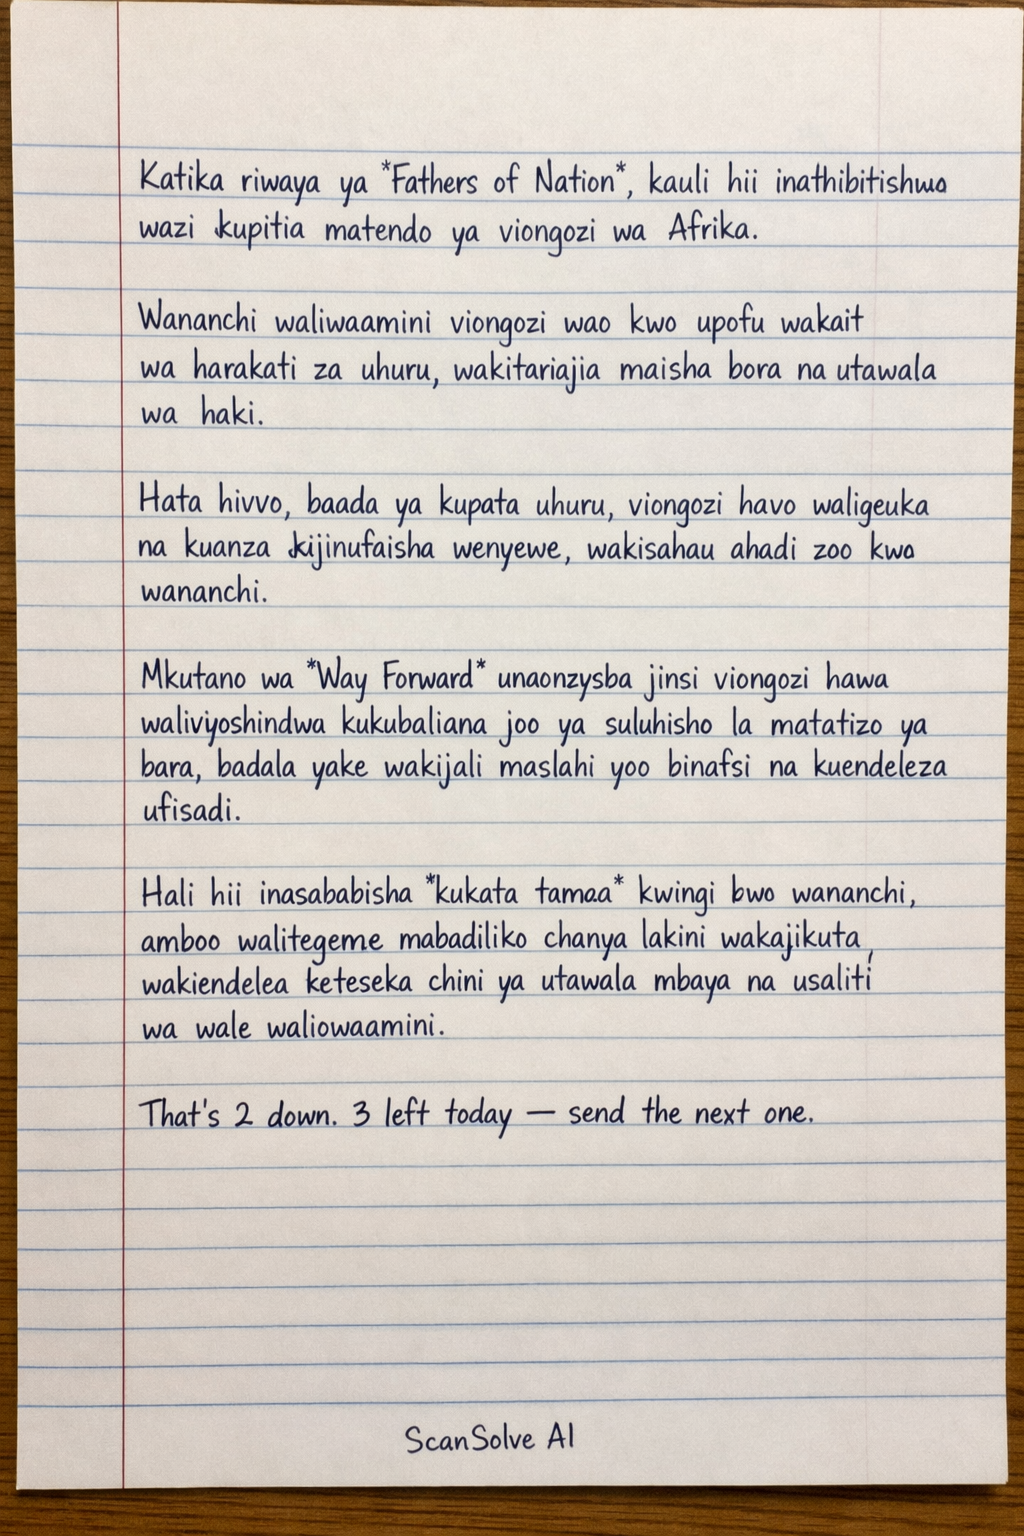 Katika riwaya ya *Fathers of Nation*, kauli hii inathibitishwa
wazi kupitia matendo ya viongozi wa Afrika.
Wananchi waliwaamini viongozi wao kwo upofu wakait
wa harakati za uhuru, wakitariajia maisha bora na utawala
wa haki.
Hata hivvo, baada ya kupata uhuru, viongozi havo waligeuka
na kuanza kijinufaisha wenyewe, wakisahau ahadi zoo kwa
wananchi.
Mkutano wa *Way Forward* unaonzysba jinsi viongozi hawa
walivyoshindwa kukubaliana joo ya suluhisho la matatizo ya
bara, badala yake wakijali maslahi yoo binafsi na kuendeleza
ufisadi.
Hali hii inasababisha *kukata tamaa* kwingi bwo wananchi,
amboo walitegeme mabadiliko chanya lakini wakajikuta,
wakiendelea keteseka chini ya utawala mbaya na usaliti
wa wale waliowaamini.
That's 2 down. 3 left today — send the next one.
ScanSolve AI